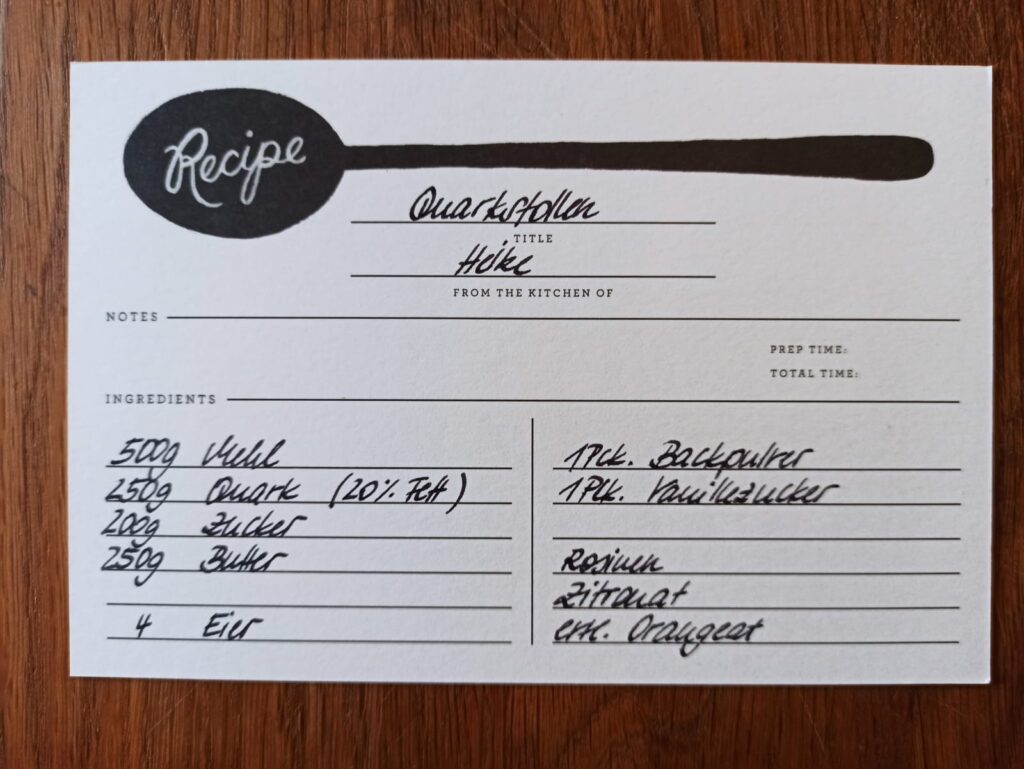 Recipe
Quarkstollen
TITLE
Heike
FROM THE KITCHEN OF
NOTES
PREP TIME:
TOTAL TIME:
INGREDIENTS
500g Mehl
250g Quark (20% Fett)
200g Zucker
250g Butter
4 Eier
1 Pck. Backpulver
1 Pck. Vanillezucker
Rosinen
Zitronat
evtl. Orangeat